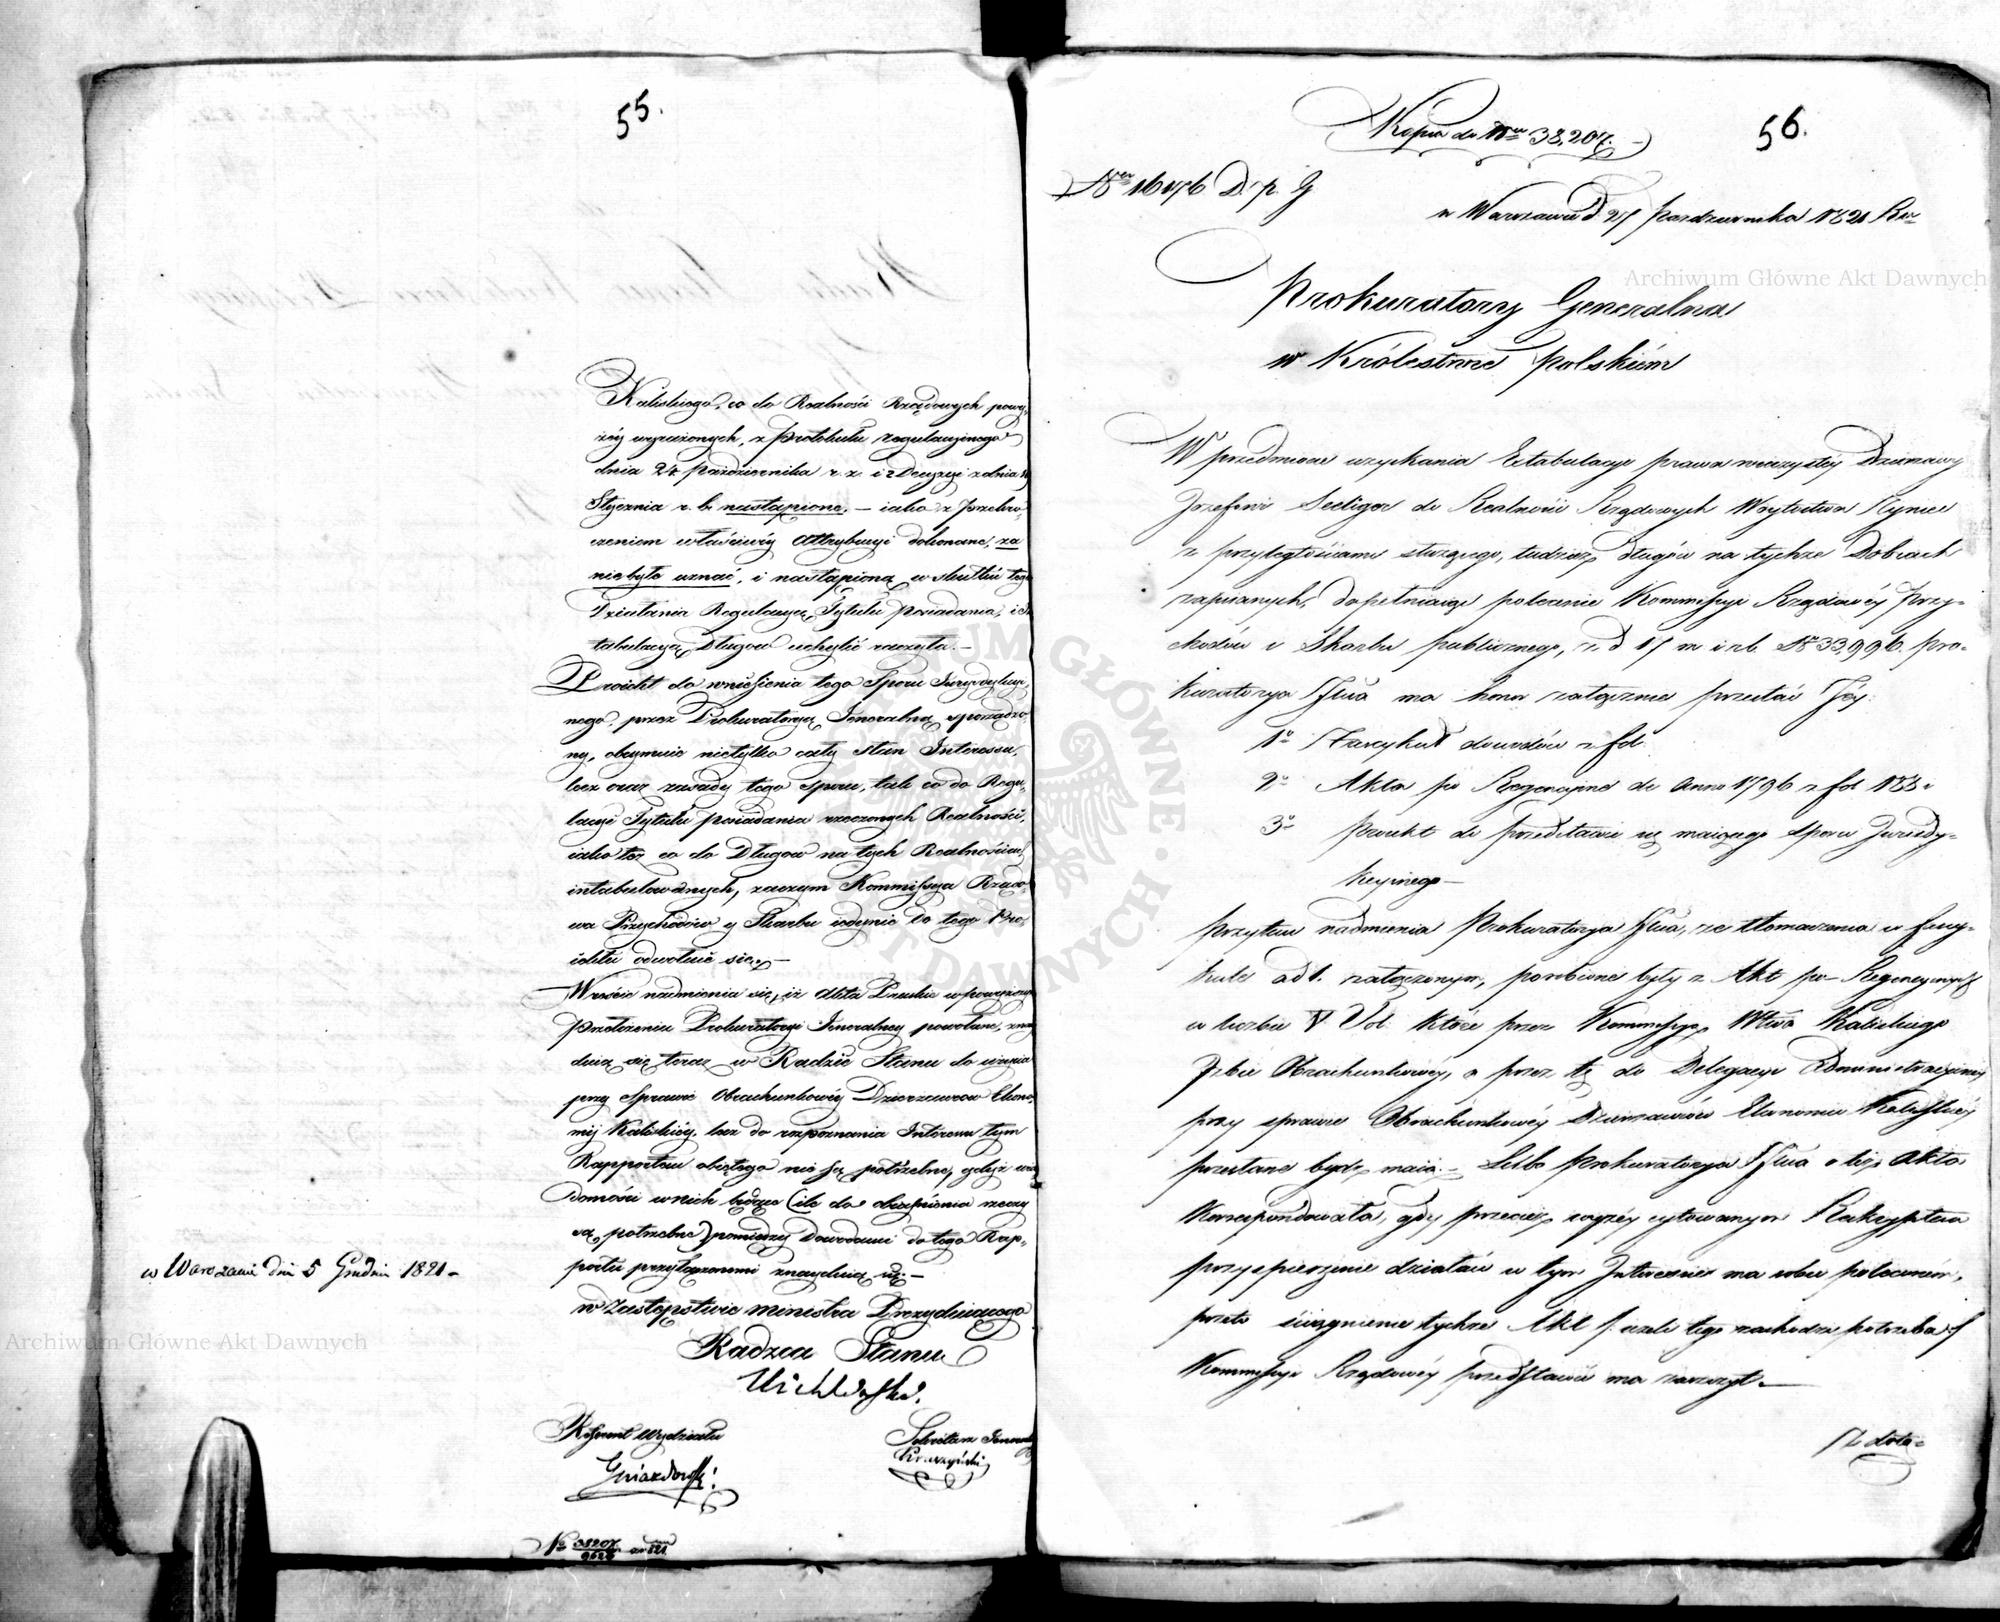 55.
Kaliskiego, co do Realności Rządowych powy-
żéy wyrażonych, z Protokułu regulacyjnego
dnia 24 Października r. z. i z Decyzyi z dnia
Stycznia r. b. nastąpione, — iako z Przekro-
czeniem właściwéy Attrybucyi dokonane, za
niebyłe uznać, i nastąpioną w skutku tego
Działania Regulacyą Tytułu posiadania, i In
tabulacyą Długów uchylić raczyła. —
Proiekt do wniesienia tego Sporu Jurysdykcyi-
nego, przez Prokuratoryą Jeneralną sporządzo-
ny, obeymuie nietylko cały stan Interessu,
lecz oraz zasady tego Sporu, tak co do Regu-
lacyi Tytułu posiadania rzeczonych Realności,
iako też co do Długów na tych Realnościach
intabulowanych, zaczym Kommissya Rządo-
wa Przychodów y Skarbu iedynie do tego Pro-
iektu odwołuie się. —
Wreście nadmienia się, iż Akta Pruskie w powyższym
przełożeniu Prokuratoryi Jeneralney powołane, znay
duią się teraz w Radzie Stanu do użycia
przy Sprawie Obrachunkowéy Dzierzawców Ekono-
mij Kaliskiéy, lecz do rozpoznania Interessu tym
Rapportem obiętego nie są potrzebne, gdyż wia
domości w nich będące (ile do obiaśnienia rzeczy
są potrzebne) pomiędzy Dowodami do tego Rap-
portu przyłączonemi znayduią się —
w Warszawie dnia 5 Grudnia 1821 —
w Zastępstwie Ministra Prezyduiącego
Radzca Stanu
Referent Wydziału
Sekretarz Jeneralny
Gniazdowski
No 38207
56.
Kopia do Nru 38,207. —
Nro 16176 D. p. G
w Warszawie d. 27 Pazdziernika 1821 Ru
Prokuratorya Generalna
w Królestwie Polskiém
W przedmiocie uzyskania Extabulacyi prawa wieczystéy Dzierzawy
Jozefowi Seeliger do Realności Rządowych Woytostwa Rynie
z przyległościami służącego, tudzież długów na tychże Dobrach
zapisanych, dopełniaiąc polecenie Kommissyi Rządowéy Przy-
chodów i Skarbu publicznego, z d 17 m i r b. No 33,996. Pro-
kuratorya Jlna ma honor załącznie przesłać Jéy:
1o Fascykuł dowodów z fol.
2o Akta po Regencyine de Anno 1796 z fol 183.
3o Proiekt do przedstawić się maiącego sporu Jurisdy-
kcyinego —
przytém nadmienia Prokuratorya Jlna, że tłomaczenia w fascy-
kule ad 1. załączonym, porobione były z Akt po-Regencyinych
w liczbie V Vol. które przez Kommissyą Wtwa Kaliskiego
Izbie Obrachunkowéy, a przez tę do Delegacyi Administracyinéy
przy sprawie Obrachunkowéy Dzierzawców Ekonomii Kaliskiéy
przesłane bydź maią. — Lubo Prokuratorya Jlna o też Akta
korrespondowała, gdy przecież wyżéy cytowanym Reskryptem
przyspieszenie działań w tym Interessie ma sobie poleconém,
przeto ściągnienie tychże Akt /: ieżeli tego zachodzi potrzeba :/
Kommissyi Rządowéy przedstawić ma zaszczyt. —